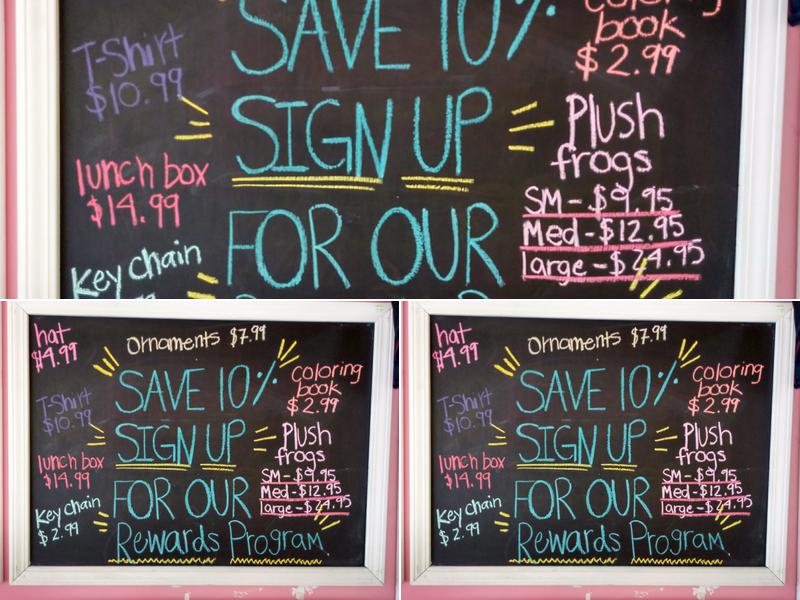 T-Shirt
$10.99
lunch box
$14.99
Key chain
SAVE 10%
SIGN UP
FOR OUR
coloring
book
$2.99
Plush
frogs
SM - $9.95
Med - $12.95
large - $24.95
hat
$4.99
T-Shirt
$10.99
lunch box
$14.99
Key chain
$2.99
Ornaments $7.99
SAVE 10%
SIGN UP
FOR OUR
Rewards Program
coloring
book
$2.99
Plush
frogs
SM - $9.95
Med - $12.95
large - $24.95
hat
$4.99
T-Shirt
$10.99
lunch box
$14.99
Key chain
$2.99
Ornaments $7.99
SAVE 10%
SIGN UP
FOR OUR
Rewards Program
coloring
book
$2.99
Plush
frogs
SM - $9.95
Med - $12.95
large - $24.95